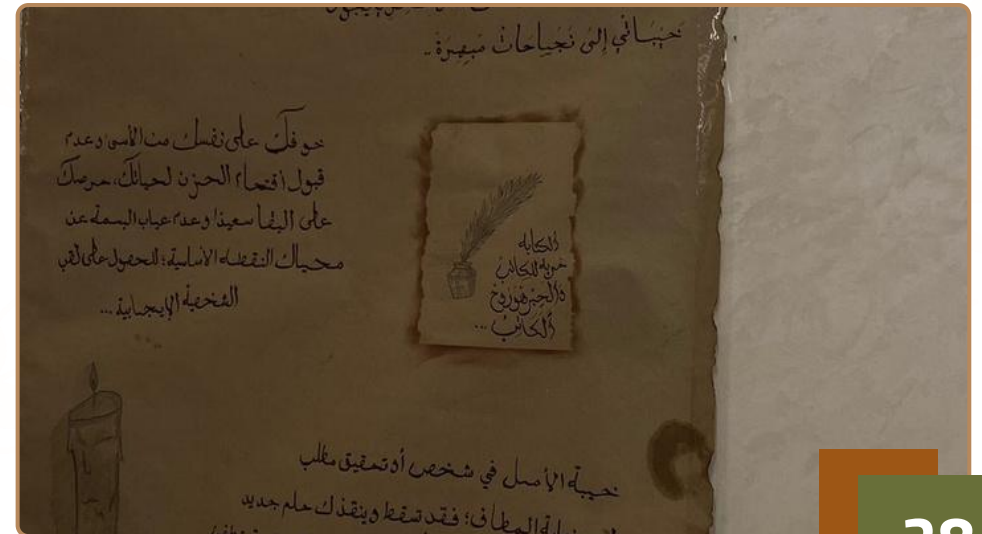 خيباتي إلى نجاحات مبهرة..
خوفك على نفسك من الأسى وعدم
قبول اقتحام الحزن لحياتك، حرصك
على البقا سعيدا وعدم غياب البسمة عن
محياك النقطة الأساسية؛ للحصول على لقب
الشخصية الإيجابية...
الكتابة
حرية للكاتب
والحبر هو روح
الكاتب...
خيبة الأمل في شخص أو تحقيق مطلب
المطاف؛ فقد تسقط وينقذك حلم جديد